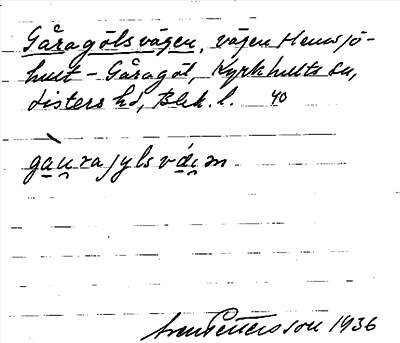 Gåragölsvägen, vägen Hemsjö-
hult - Gåragöl, Kyrkhults sn,
Listers hd, Blek. l. 40
gàu̯rajylsvǽi̯en
Sven Pettersson 1936